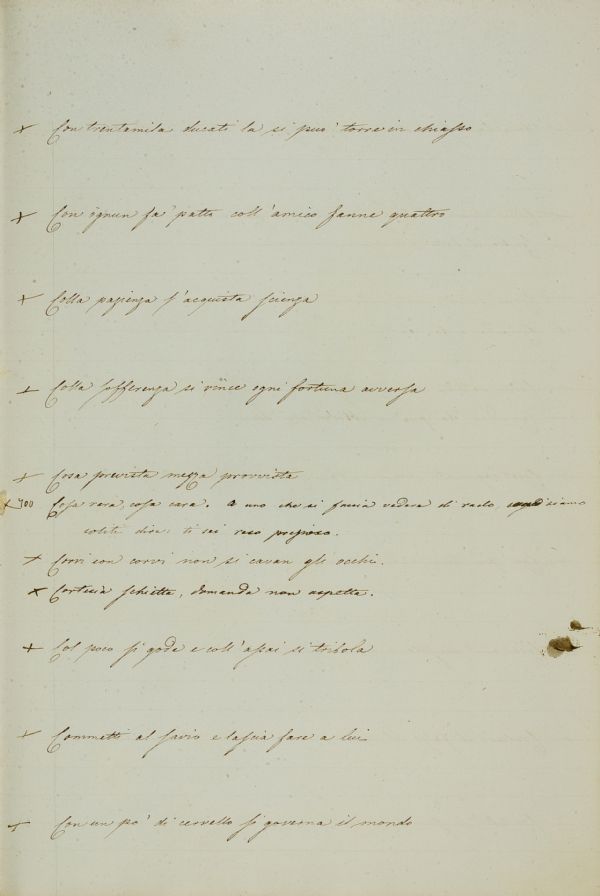 + Con trentamila ducati la si può torre in chiasso
+ Con ignun fa' patti coll' amico fanne quattro
+ Colla pazienza s'acquista scienza
+ Colla sofferenza si vince ogni fortuna avversa
+ Cosa prevista mezza provvista
+ 700 Cosa rara, cosa cara. A uno che si faccia vedere di rado, siamo
soliti dire: ti sei reso prezioso.
+ Corvi con corvi non si cavan gli occhi.
+ Cortesia schietta, domanda non aspetta.
+ Col poco si gode e coll' assai si tribola
+ Commetti al savio e lascia fare a lui
+ Con un po' di cervello si governa il mondo